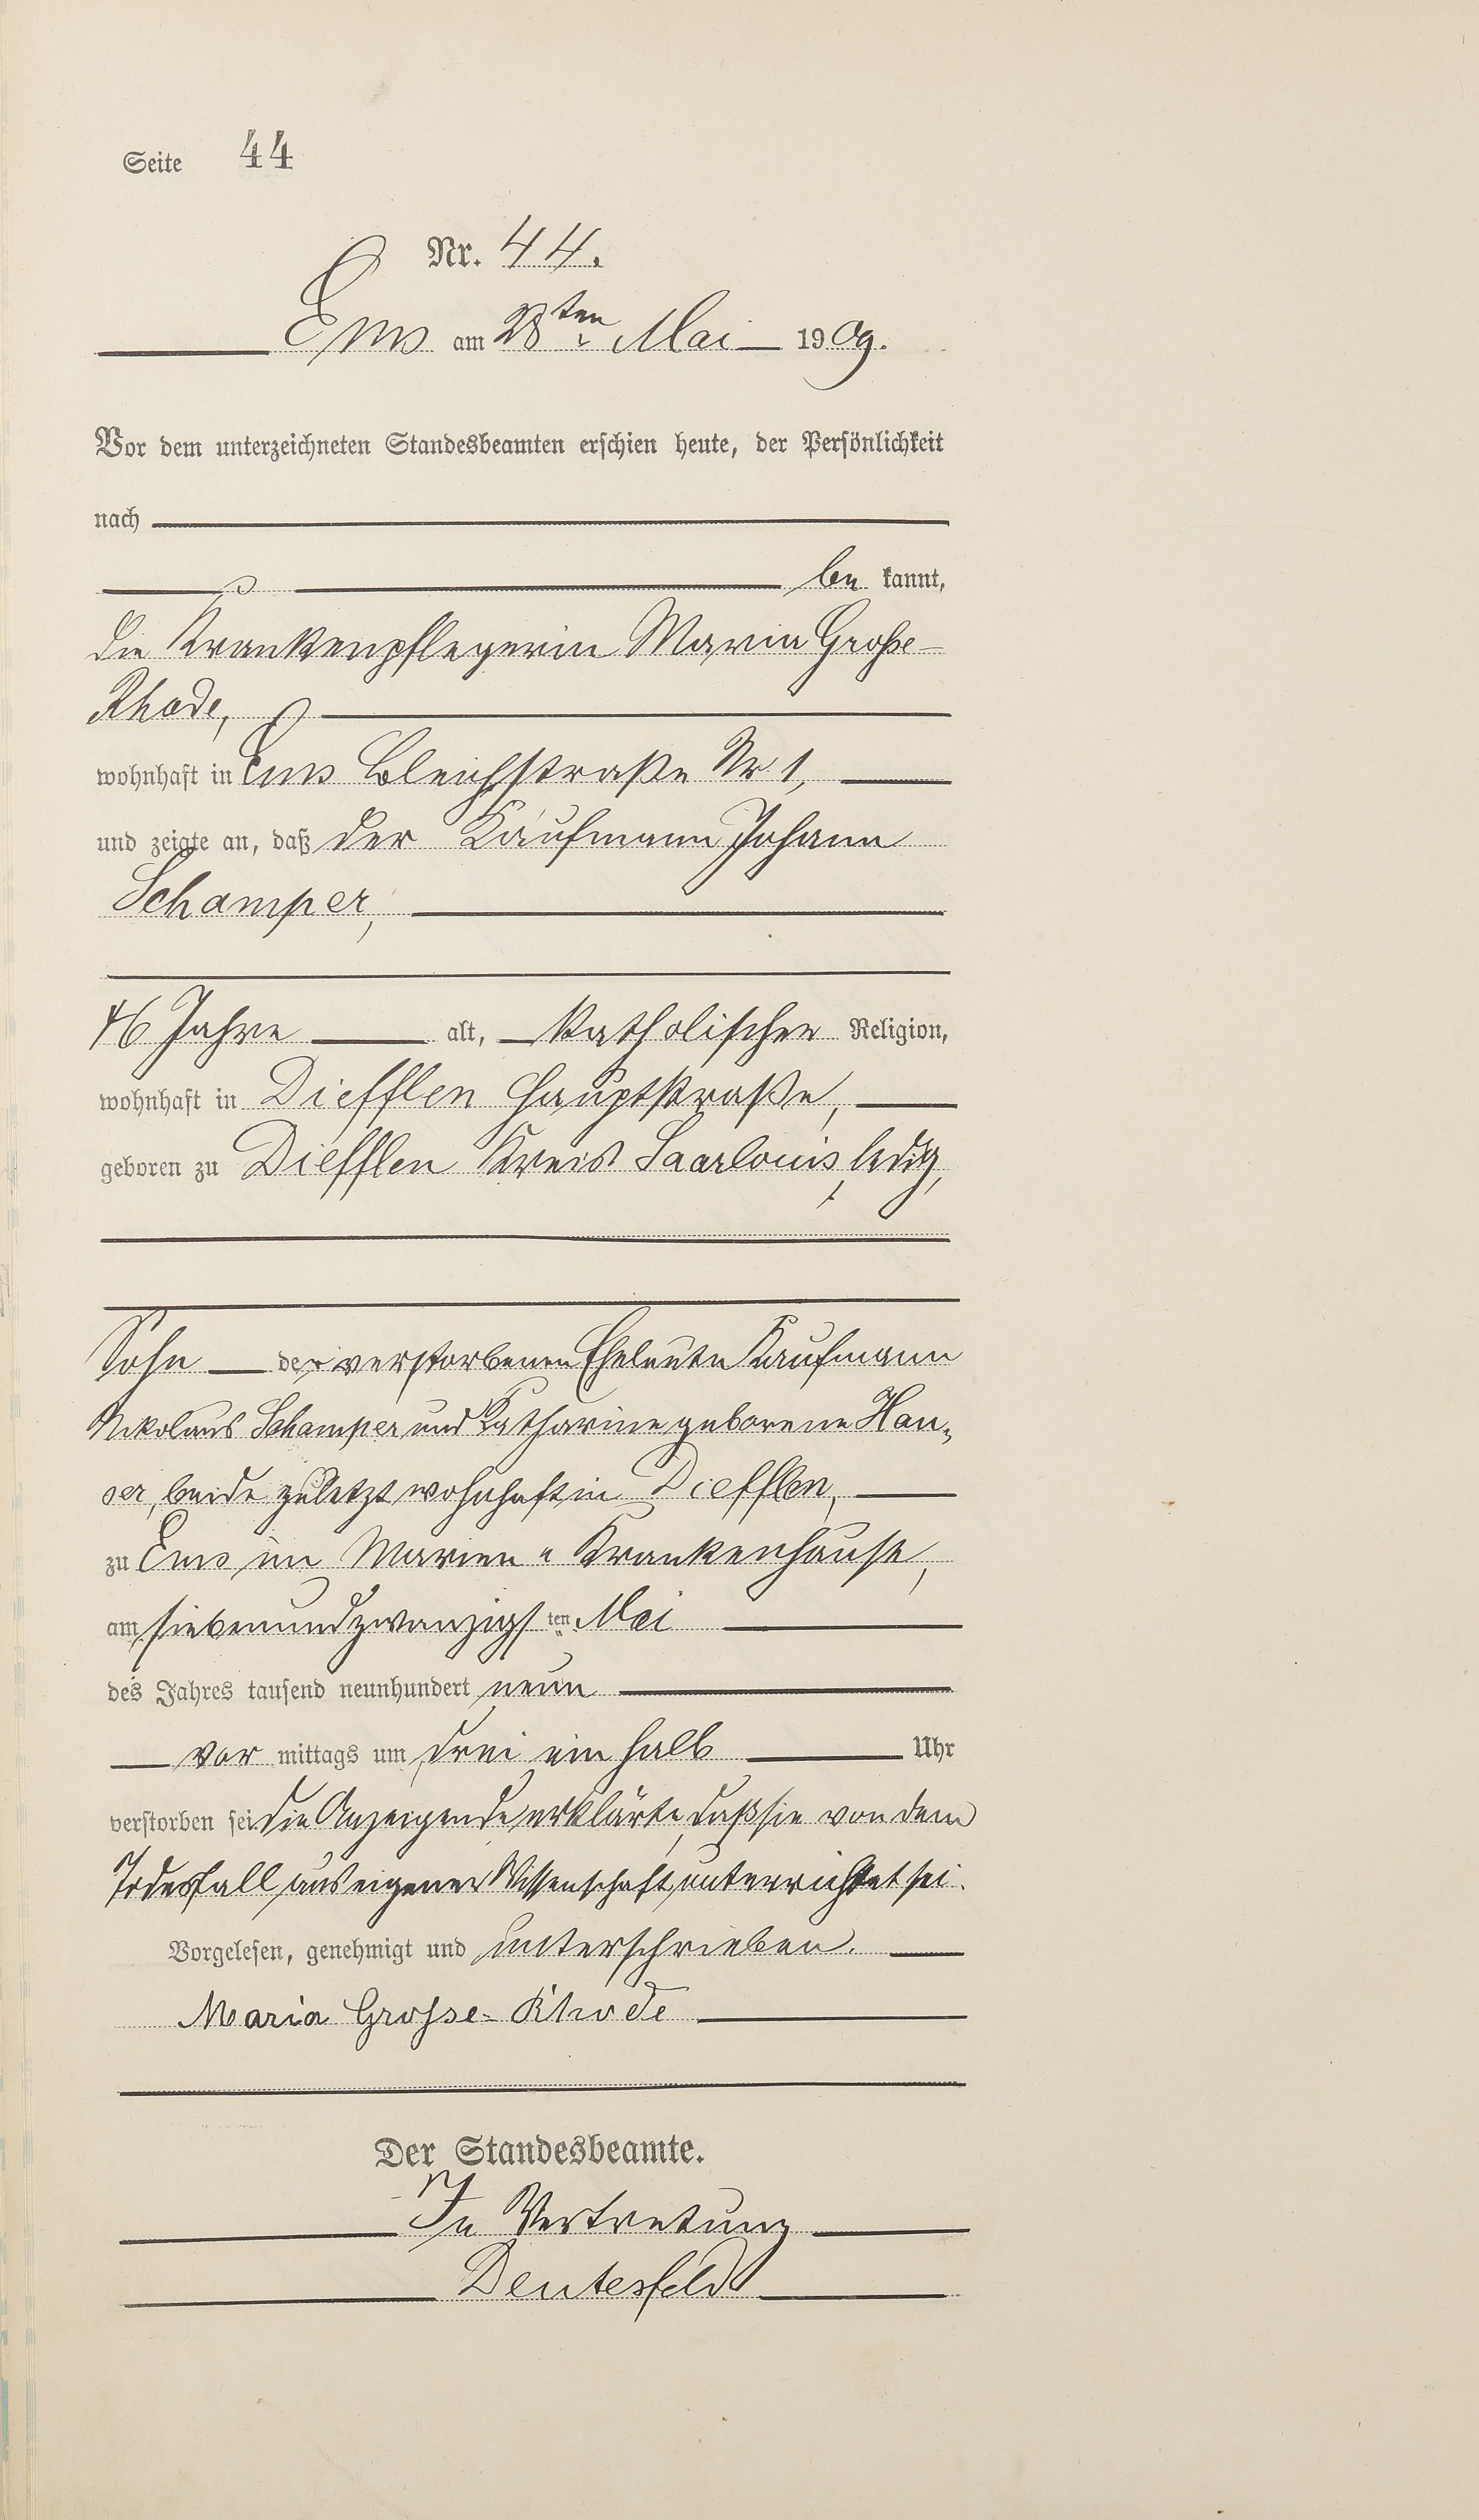 Seite 44
Nr. 44.
Ems am 28ten Mai 1909.
Vor dem unterzeichneten Standesbeamten erschien heute, der Persönlichkeit
nach
be kannt,
die Krankenpflegerin Maria Große-
Rhode,
wohnhaft in Ems Bleichstraße Nr 1,
und zeigte an, daß der Kaufmann Johann
Schamper,
46 Jahre alt, katholischer Religion,
wohnhaft in Diefflen Hauptstraße,
geboren zu Diefflen Kreis Saarlouis, ledig,
Sohn der verstorbenen Eheleute Kaufmann
Nikolaus Schamper und Katharine geborene Hau-
ser, beide zuletzt wohnhaft in Diefflen,
zu Ems im Marien-Krankenhause,
am siebenundzwanzigsten Mai
des Jahres tausend neunhundert neun
vor mittags um drei ein halb Uhr
verstorben sei. Die Anzeigende erklärte, daß sie von dem
Todesfall aus eigener Wissenschaft unterrichtet sei.
Vorgelesen, genehmigt und unterschrieben.
Maria Grosse-Rhode
Der Standesbeamte.
In Vertretung
Deutesfeld